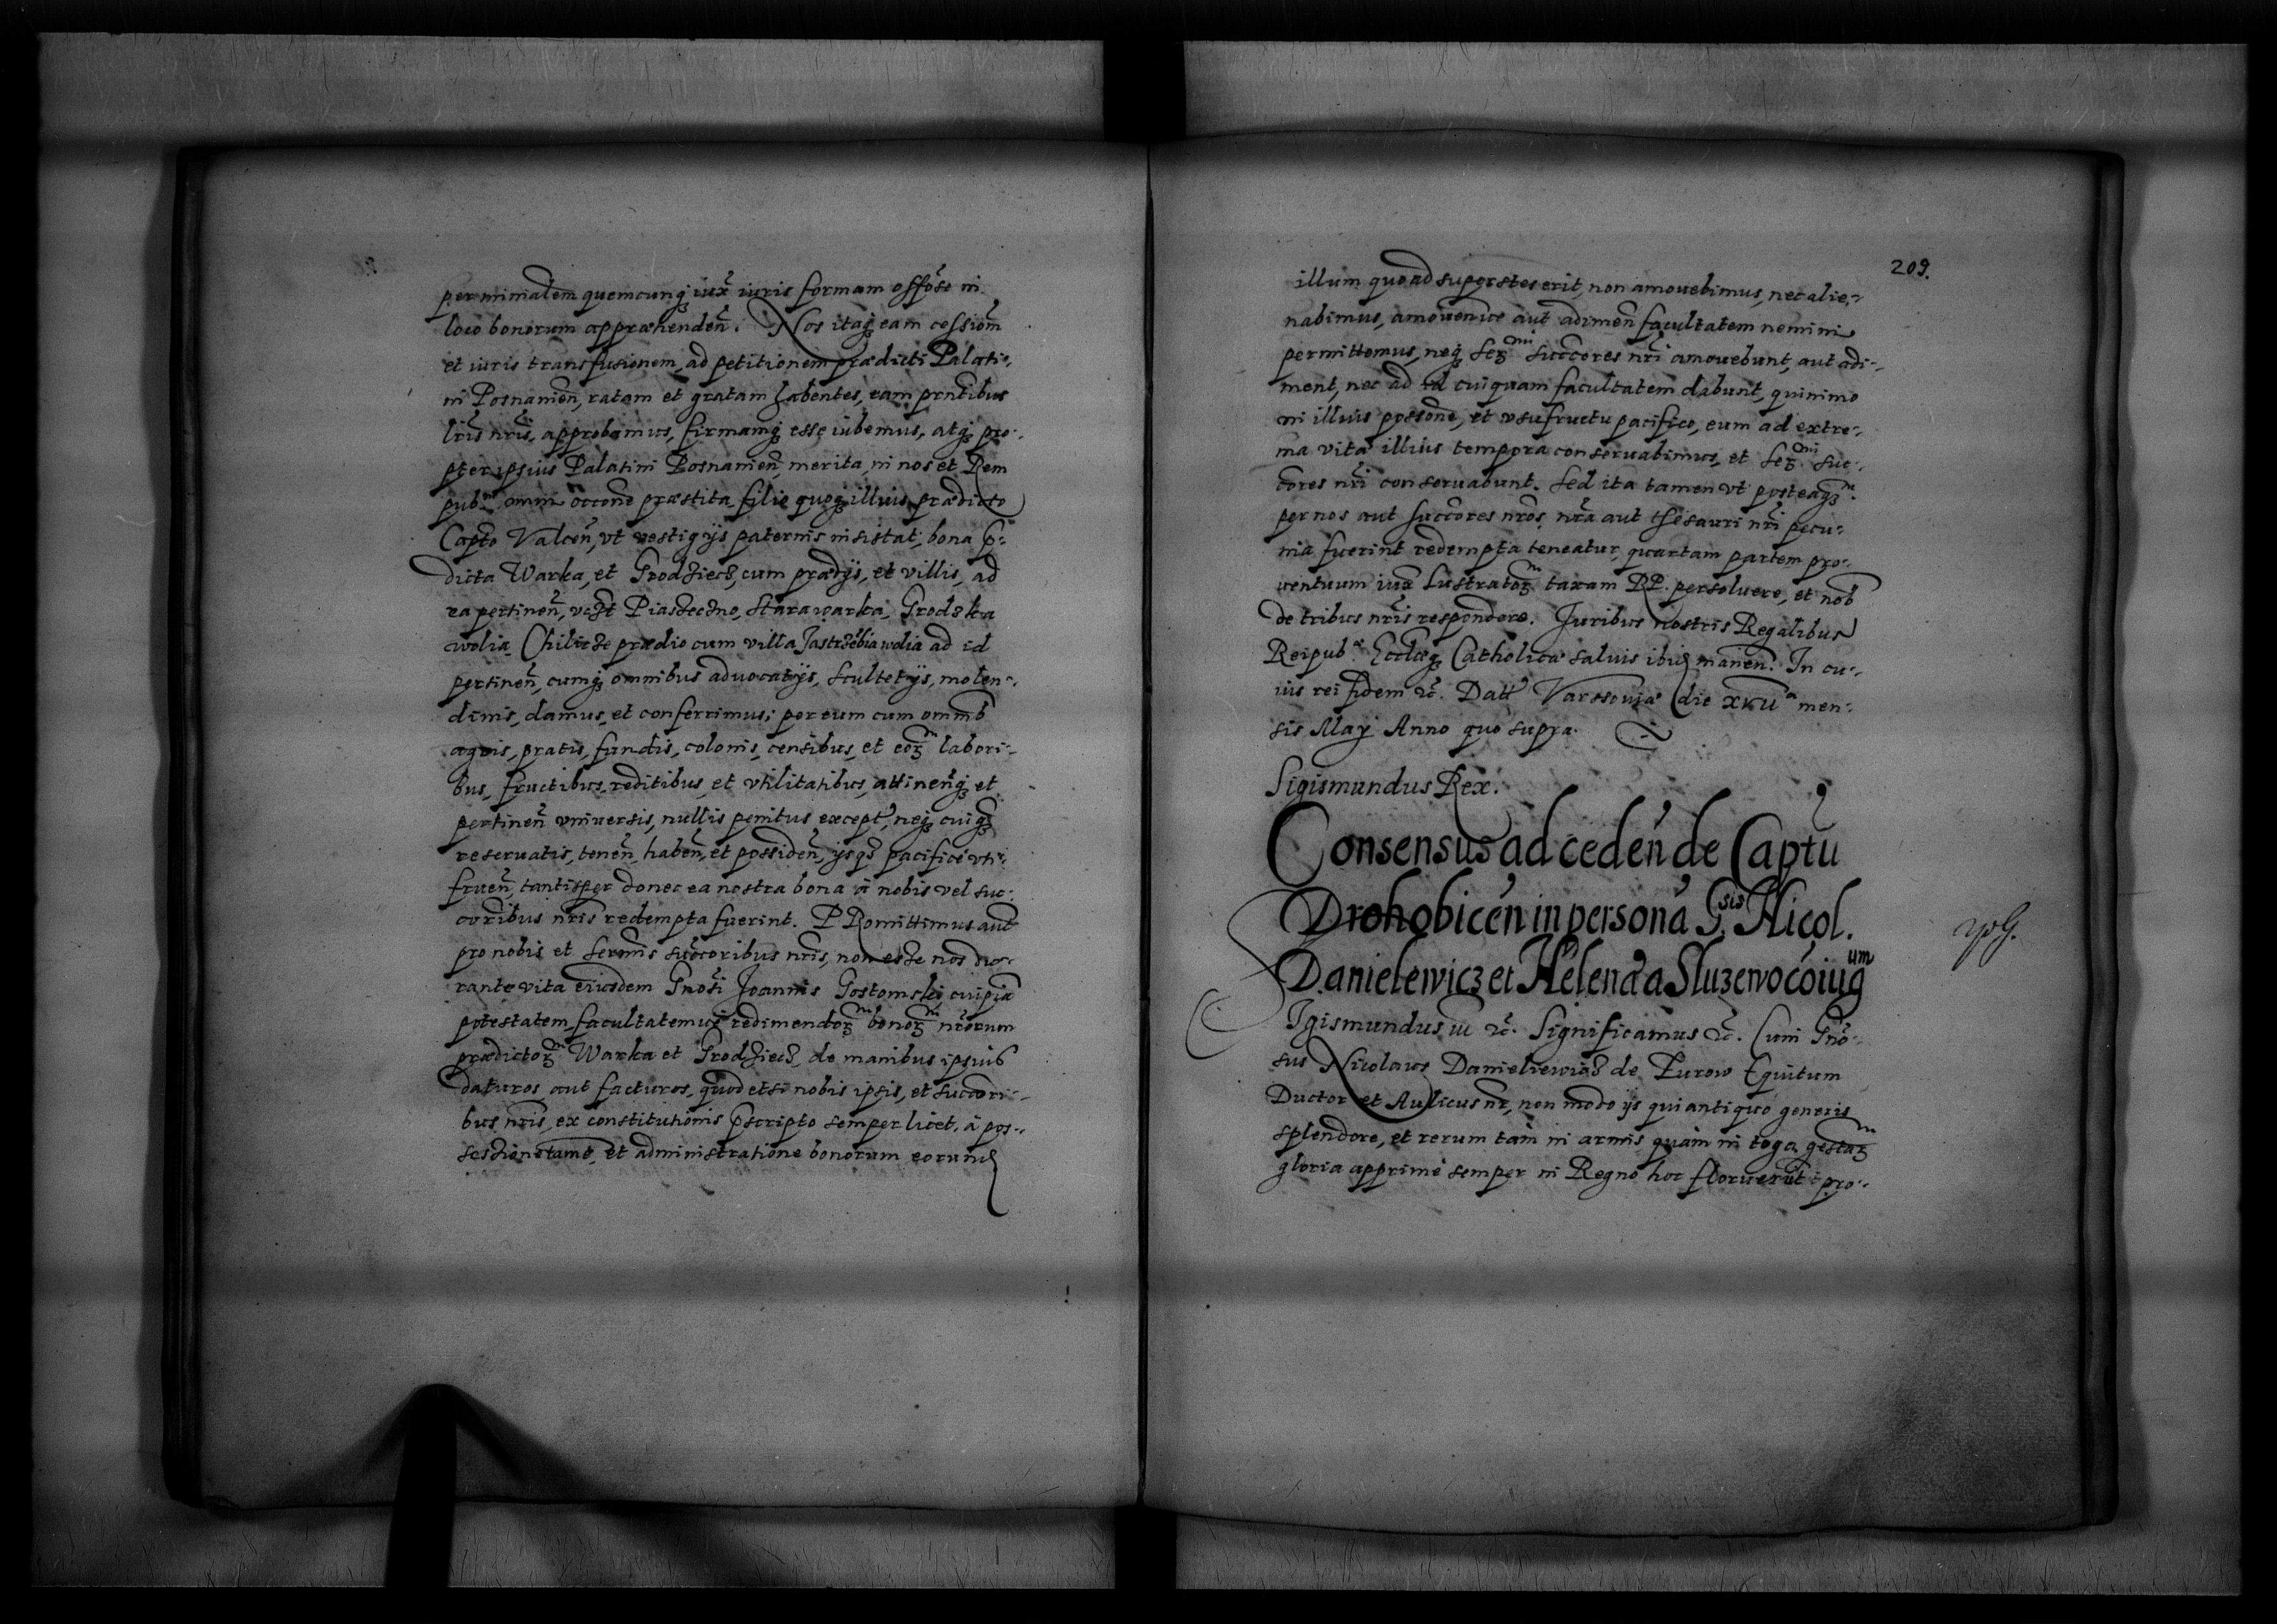 per minialem quemcunq iux̃ iuris formam offose in
loco bonorum appræhendeñ. Nos itaq eam cessioñ
et iuris transfusionem, ad petitionem prædicti Palati-
ni Posnanieñ, ratam et gratam habentes, eam prñtibus
lris̃ nris̃, approbamus, firmamq esse iubemus, atq pro-
pter ipsius Palatini Posnanieñ merita in nos et Rem
pub. omni occone præstita filio quoq illius prædicto
Capto Valceñ, vt vestigijs paternis insistat, bona p-
dicta Warka, et Grodziecz, cum prædijs, et villis, ad
ea pertineñ, vcz̃t Piaseczno, Starawarka, Grodzka
wolia, Chilicze prædio cum villa Jastrzębia wolia ad id
pertineñ, cumq omnibus aduocatijs, scultetijs, molen-
dinis, damus, et conferrimus; per eum cum omnib
agris, pratis, fundis, colonis, censibus, et eoz labori-
bus, fructibus, reditibus, et vtilitatibus, attineñq et
pertineñ vniuersis, nullis penitus except, neq cuiq
reseruatis, teneñ, habeñ, et possideñ, ijsqz pacifice vti-
frueñ, tantisper donec ea nostra bona à nobis vel suc-
coribus nris redempta fuerint. PRomittimus aut
pro nobis et sermis succoribus nris, non esse nos du-
rante vita eiusdem Gnosi Joannis Gostomski, cuipiã
potestatem, facultatemue redimendoz bonoz nrorum
prædictoz Warka et Grodziecz, de manibus ipsius
daturos, aut facturos, quod etsi nobis ipsis, et succori-
bus nris, ex constitutionis pscripto semper licet, à pos-
sessione tamẽ, et administratione bonorum eorund
209.
illum quoad superstes erit, non amouebimus, nec alie-
nabimus, amouendi aut adimeñ facultatem nemini
permittemus, neq Serz succores nri amouebunt, aut adi-
ment, nec ad id cuiquam facultatem dabunt, quinimo
in illius possone, et vsufructu pacifico, eum ad extre-
ma vitæ illius tempora conseruabimus, et Serz suc-
cores nri conseruabunt. Sed ita tamen vt posteaqz
per nos aut succores nros, nra aut thesauri nri pecu-
nia fuerint redempta teneatur, quartam partem pro-
uentuum iux̃ Lustratoz taxam RP. persoluere, et nob
de tribus nris respondere. Juribus nostris Regalibus
Reipub Ecclæq Catholicæ saluis ibid maneñ. In cu-
ius rei fidem &c. Datt Varssouiæ die XXVII men-
sis May Anno quo supra.
Sigismundus Rex.
Consensus ad cedeñ de Captu
Drohobiceñ in persona G.sis Nicol.
Danielewicz et Helenæ a Sluzewo coiugum
Igismundus iii &c. Significamus &c. Cum Gño-
sus Nicolaus Danieliewicz de Zurow Equitum
Ductor et Aulicus nr, non modo ijs qui antiquo generis
splendore, et rerum tam in armis quàm in toga gestaz
gloria apprimè semper in Regno hoc floruerũt pro-